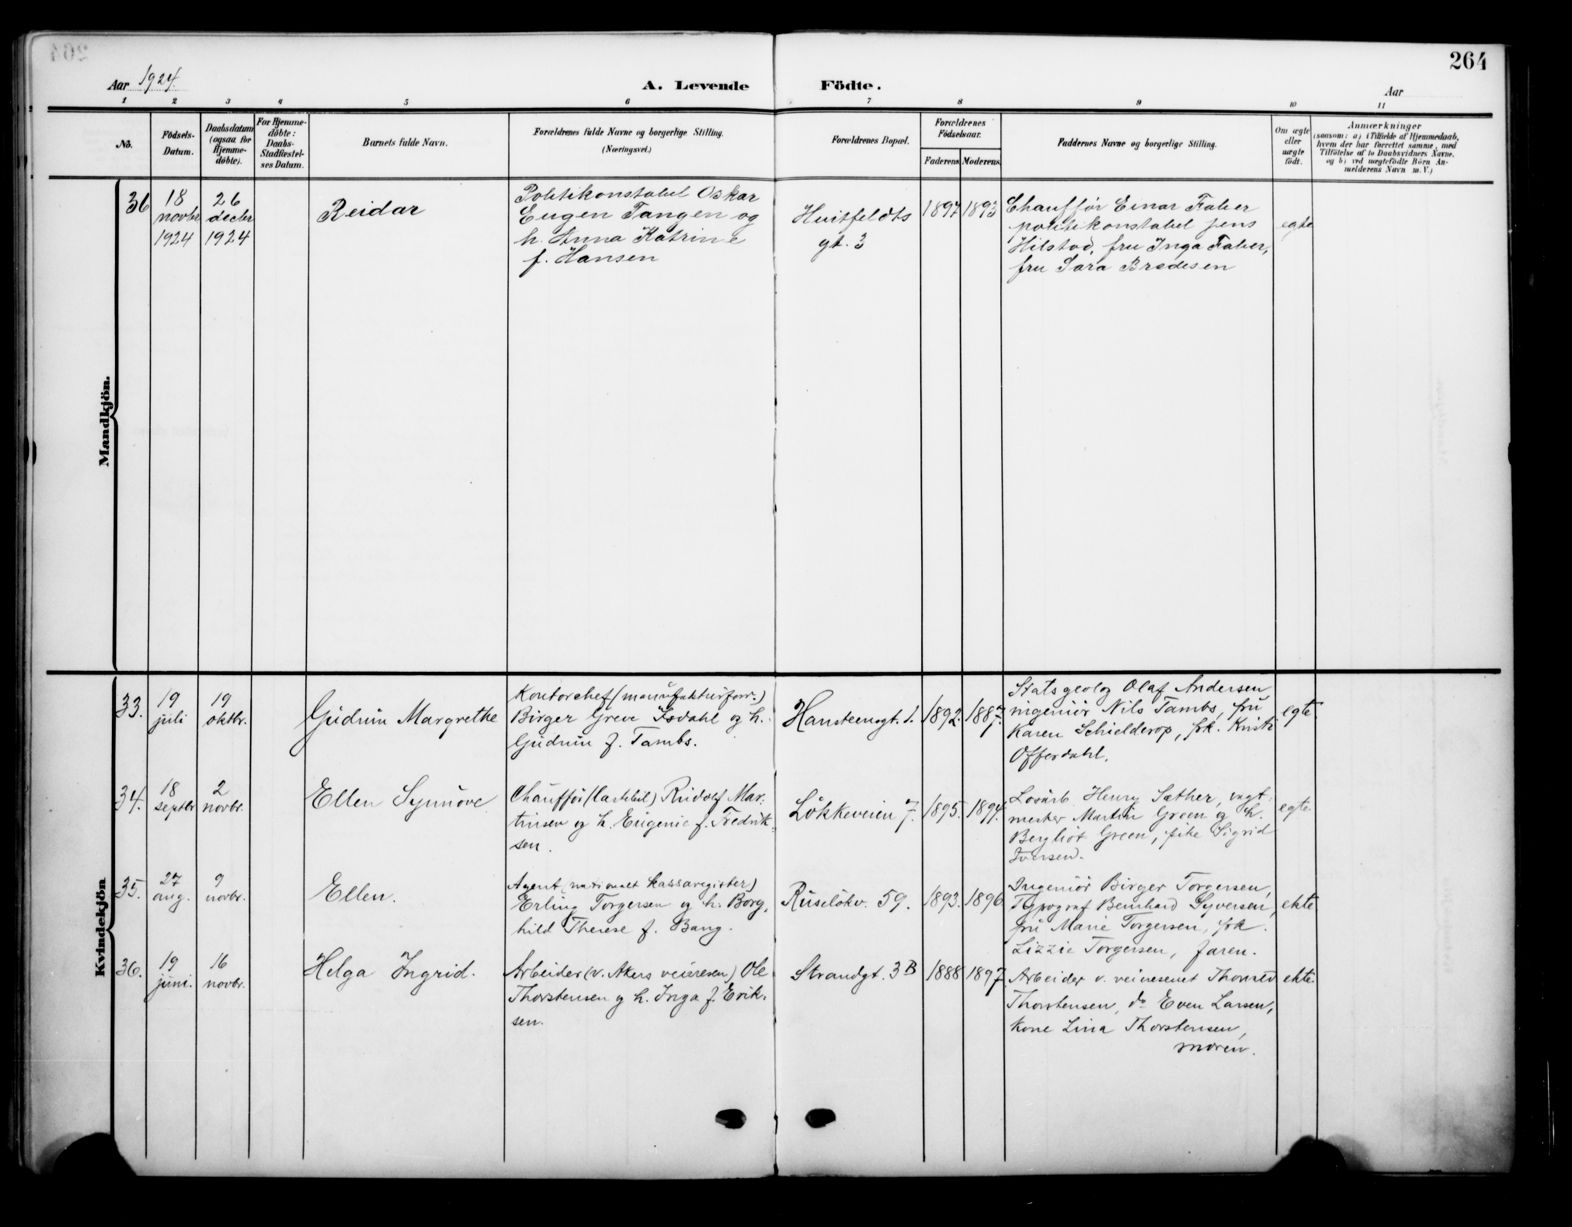 264
Aar 1924.
A. Levende Födte.
Aar
1 2 3 4 5 6 7 8 9 10 11
No.
Födsels-
Datum.
Daabsdatum
(ogsaa for
Hjemme-
döbte).
For Hjemme-
döbte:
Daabs-
Stadfæstel-
ses Datum.
Barnets fulde Navn.
Forældrenes fulde Navne og borgerlige Stilling.
(Næringsvei.)
Forældrenes Bopæl.
Forældrenes
Födselsaar.
Faderens Moderens
Faddernes Navne og borgerlige Stilling.
Om ægte
eller
uægte
födt.
Anmærkninger
(saasom: a) i Tilfælde af Hjemmedaab,
hvem der har forrettet samme, med
Tilföielse af to Daabsvidners Navne,
og b) ved uægtefödte Börn An-
melderens Navn m. V.)
Mandkjön.
36
18
novbr
1924
26
decbr
1924
Reidar
Politikonstabel Oskar
Eugen Tangen og
h. Anna Katrine
f. Hansen
Huitfeldts
gt. 3
1897 1893
Chauffør Einar Faber
politikonstabel Jens
Hilstad, fru Inga Faber,
fru Sara Bredesen
egte
Kvindekjön
33.
19
juli
19
oktbr.
Gudrun Margrethe
Kontorchef (manufakturforr.)
Birger Greve Isdahl og h.
Gudrun f. Tambs.
Hansteensgt. 1.
1892. 1887.
Statsgeolog Olaf Andersen
ingeniør Nils Tambs, fru
Karen Schielderop, frk. Kirsti
Offerdahl.
egte
34.
18
septbr
2
novbr.
Ellen Synnøve
Chauffør (lastebil) Rudolf Mar-
tinsen og h. Eugenie f. Fredrik-
sen.
Løkkeveien 7.
1895. 1894.
Løsarb. Henry Sæther, vagt-
mester Martin Green og h.
Bergliot Green, pike Sigrid
Iversen.
egte
35.
27
aug.
9
novbr.
Ellen.
Agent (nationalt kassaregister)
Erling Torgersen og h. Borg-
hild Therese f. Bang.
Ruseløkv. 59.
1893. 1896
Ingeniør Birger Torgersen,
Typograf Bernhard Syversen,
fru Marie Torgersen, frk.
Lizzie Torgersen, faren.
ekte
36.
19
juni.
16
novbr.
Helga Ingrid.
Arbeider (v. Akers veivesen) Ole
Thorstensen og h. Inga f. Erik-
sen.
Strandgt. 3 B
1888 1897
Arbeider v. veivesenet
Thorstensen, do Even Larsen,
kone Lina Thorstensen,
moren.
ekte